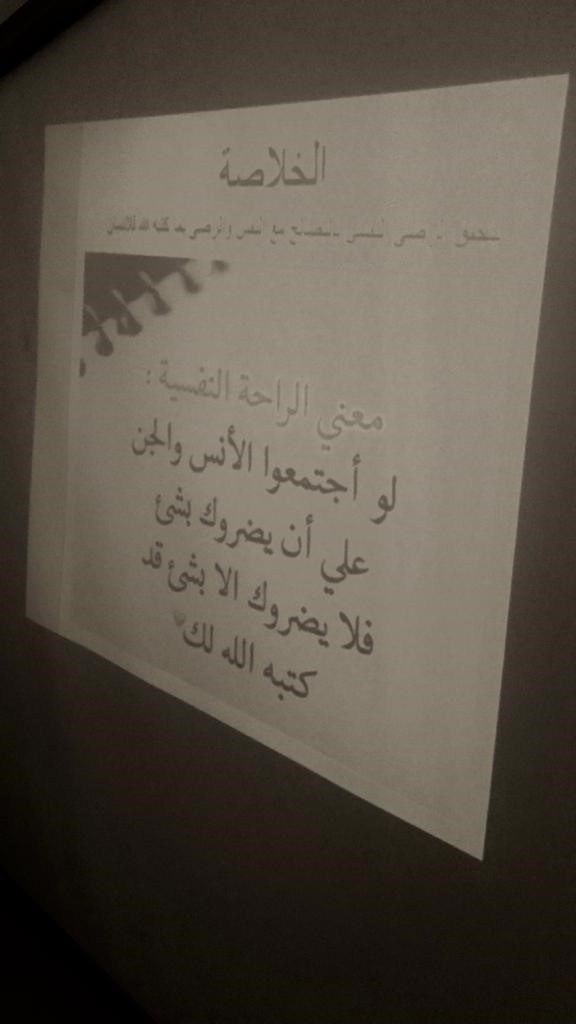 الخلاصة
يتحقق الرضى النفسي بالتصالح مع النفس والرضى بما كتبه الله للانسان
معني الراحة النفسية :
لو أجتمعوا الأنس والجن
علي أن يضروك بشئ
فلا يضروك الا بشئ قد
كتبه الله لك